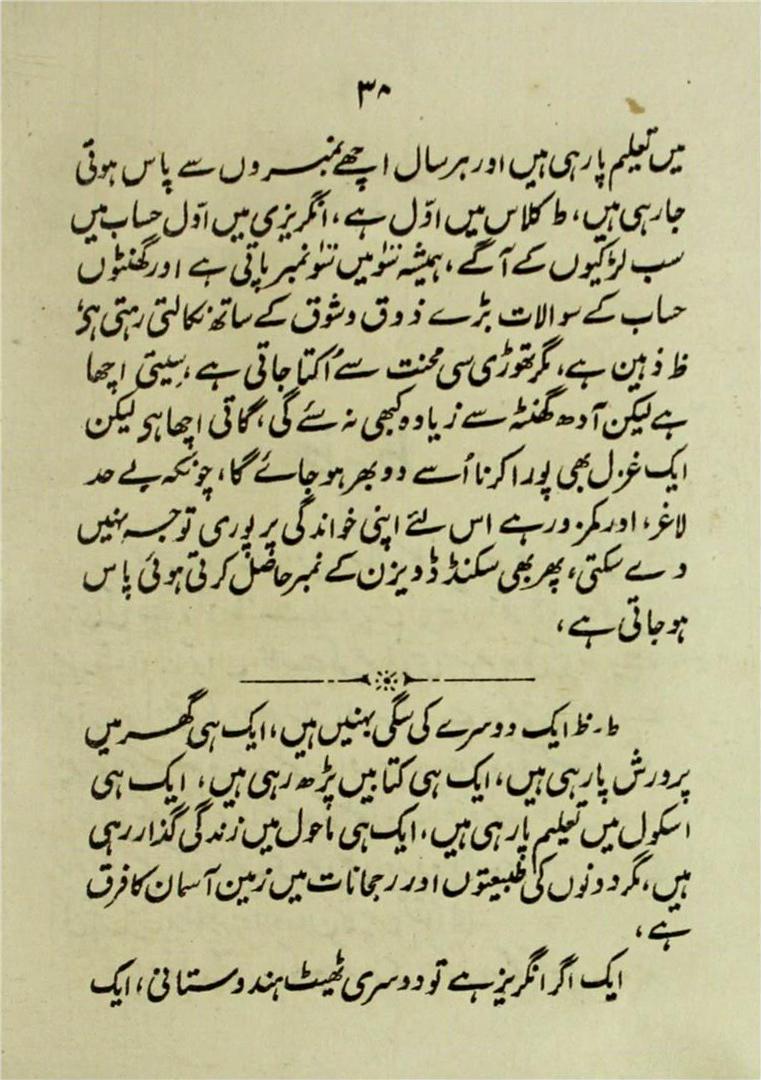 ۳۸
میں تعلیم پا رہی ہیں اور ہر سال اچھے نمبروں سے پاس ہوتی
جا رہی ہیں، ط کلاس میں اوّل ہے، انگریزی میں اوّل حساب میں
سب لڑکیوں کے آگے، ہمیشہ ننٗومیں ننٗو نمبر پاتی ہے اور گھنٹوں
حساب کے سوالات بڑے ذوق وشوق کے ساتھ نکالتی رہتی ہؤ
ظ ذہین ہے، مگر تھوڑی سی محنت سے اُکتا جاتی ہے، سیتی اچھا
ہے لیکن آدھ گھنٹہ سے زیادہ کبھی نہ سئے گی، گاتی اچھا ہو لیکن
ایک غزل بھی پورا کرنا اُسے دو بھر ہو جائے گا، چونکہ بے حد
لاغر، اور کمزور ہے اس لئے اپنی خواندگی پر پوری توجہ نہیں
دے سکتی، پھر بھی سکنڈ ڈویزن کے نمبر حاصل کرتی ہوئی پاس
ہو جاتی ہے،
ط۔ظ ایک دوسرے کی سگی بہنیں ہیں، ایک ہی گھر میں
پرورش پا رہی ہیں، ایک ہی کتابیں پڑھ رہی ہیں، ایک ہی
اسکول میں تعلیم پا رہی ہیں، ایک ہی ماحول میں زندگی گذار رہی
ہیں، مگر دونوں کی طبیعتوں اور رجحانات میں زمین آسمان کا فرق
ہے،
ایک اگر انگریز ہے تو دوسری ٹھیٹ ہندوستانی، ایک